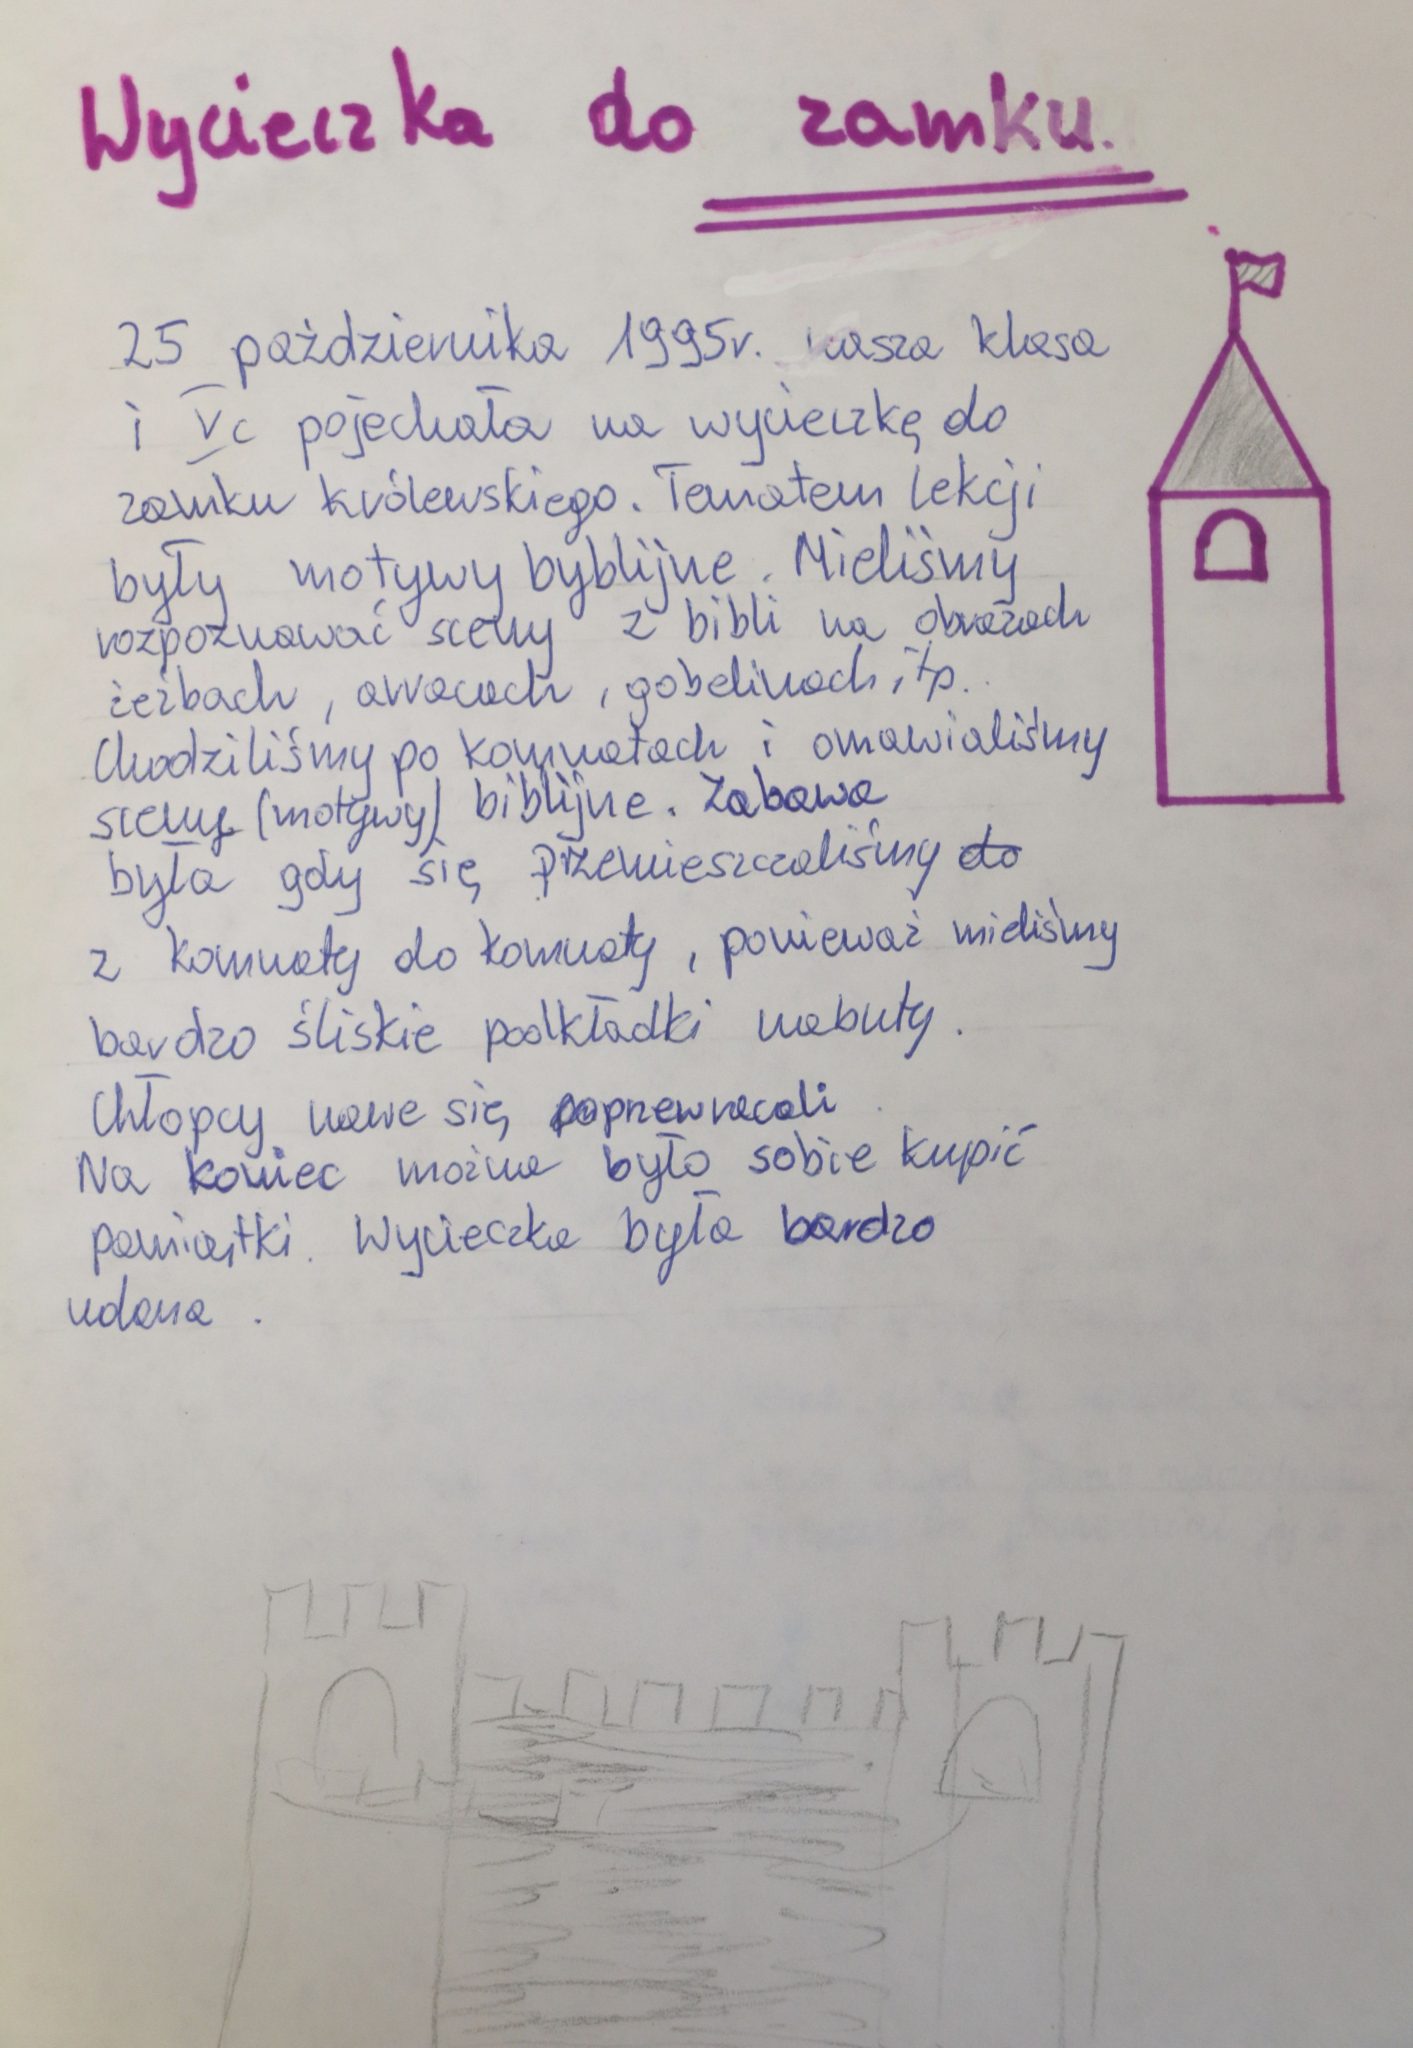 Wycieczka do zamku.
25 października 1995r. nasza klasa
i Vc pojechała na wycieczkę do
zamku królewskiego. Tematem lekcji
były motywy byblijne. Mieliśmy
rozpoznawać sceny z bibli na obrazach
żeźbach, arracach, gobelinach, itp..
Chodziliśmy po komnatach i omawialiśmy
sceny (motywy) biblijne. Zabawa
była gdy się przemieszczaliśmy do
z komnaty do komnaty, ponieważ mieliśmy
bardzo śliskie podkładki nabuty.
Chłopcy nawe się poprzewracali
Na koniec można było sobie kupić
pamiątki. Wycieczka była bardzo
udana.